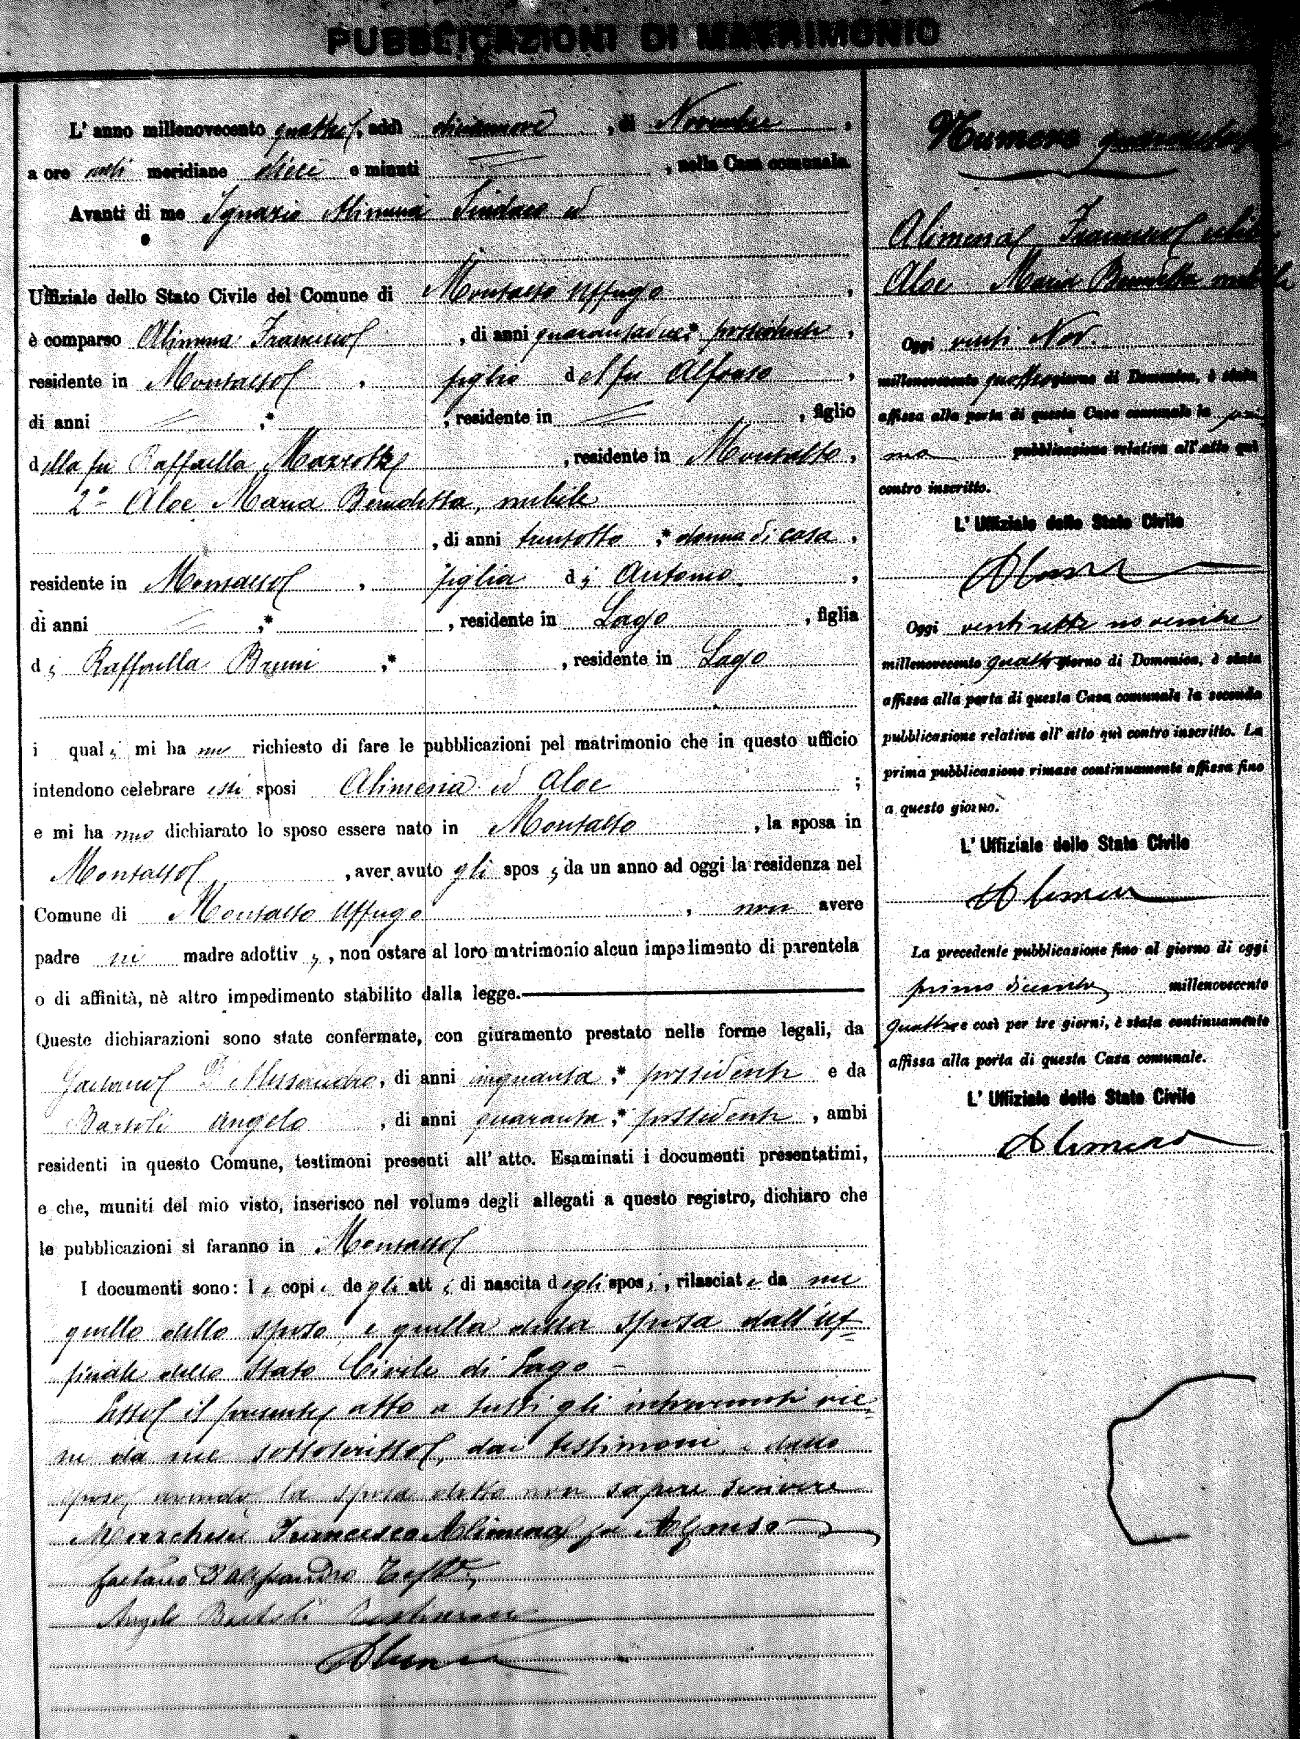 PUBBLICAZIONI DI MATRIMONIO
L' anno millenovecento quattro, addì diciannove, di Novembre,
a ore anti meridiane dieci e minuti , nella Casa comunale.
Avanti di me Ignazio Alimena Sindaco ed
Uffiziale dello Stato Civile del Comune di Montalto Uffugo,
è comparso Alimena Francesco, di anni quarantadue, * possidente,
residente in Montalto, figlio del fu Alfonso,
di anni ,* , residente in , figlio
della fu Raffaella Mazzotta, residente in Montalto,
2° Aloe Maria Benedetta, nubile
, di anni trentotto, * donna di casa,
residente in Montalto, figlia di Antonio,
di anni ,* , residente in Lago, figlia
di Raffaella Bruni ,* , residente in Lago
i quali mi hanno richiesto di fare le pubblicazioni pel matrimonio che in questo ufficio
intendono celebrare essi sposi Alimena ed Aloe ;
e mi hanno dichiarato lo sposo essere nato in Montalto, la sposa in
Montalto, aver avuto gli sposi da un anno ad oggi la residenza nel
Comune di Montalto Uffugo, non avere
padre nè madre adottivi, non ostare al loro matrimonio alcun impedimento di parentela
o di affinità, nè altro impedimento stabilito dalla legge.
Queste dichiarazioni sono state confermate, con giuramento prestato nelle forme legali, da
Gaetano D'Alessandro, di anni cinquanta, * possidente e da
Bartoli Angelo, di anni quaranta, * possidente, ambi
residenti in questo Comune, testimoni presenti all' atto. Esaminati i documenti presentatimi,
e che, muniti del mio visto, inserisco nel volume degli allegati a questo registro, dichiaro che
le pubblicazioni si faranno in Montalto
I documenti sono: Le copie degli atti di nascita degli sposi, rilasciate da me
quello dello sposo e quella della sposa dall'Uf-
ficiale dello Stato Civile di Lago =
Letto il presente atto a tutti gli intervenuti vie-
ne da me sottoscritto, dai testimoni, e dallo
sposo, avendo la sposa detto non sapere scrivere
Marchese Francesco Alimena fu Alfonso
Gaetano D'Alessandro
Angelo Bartoli testimone
Alimena
Numero
Alimena Francesco celibe
Aloe Maria Benedetta nubile
Oggi venti Nov.
millenovecento quattro giorno di Domenica, è stata
affissa alla porta di questa Casa comunale la pri
ma pubblicazione relativa all'atto quì
contro inscritto.
L' Uffiziale dello Stato Civile
Alimena
Oggi ventisette novembre
millenovecento quattro giorno di Domenica, è stata
affissa alla porta di questa Casa comunale la seconda
pubblicazione relativa all' atto quì contro inscritto. La
prima pubblicazione rimase continuamente affissa fino
a questo giorno.
L' Uffiziale dello Stato Civile
Alimena
La precedente pubblicazione fino al giorno di oggi
primo dicembre millenovecento
quattro e così per tre giorni, è stata continuamente
affissa alla porta di questa Casa comunale.
L' Uffiziale dello Stato Civile
Alimena